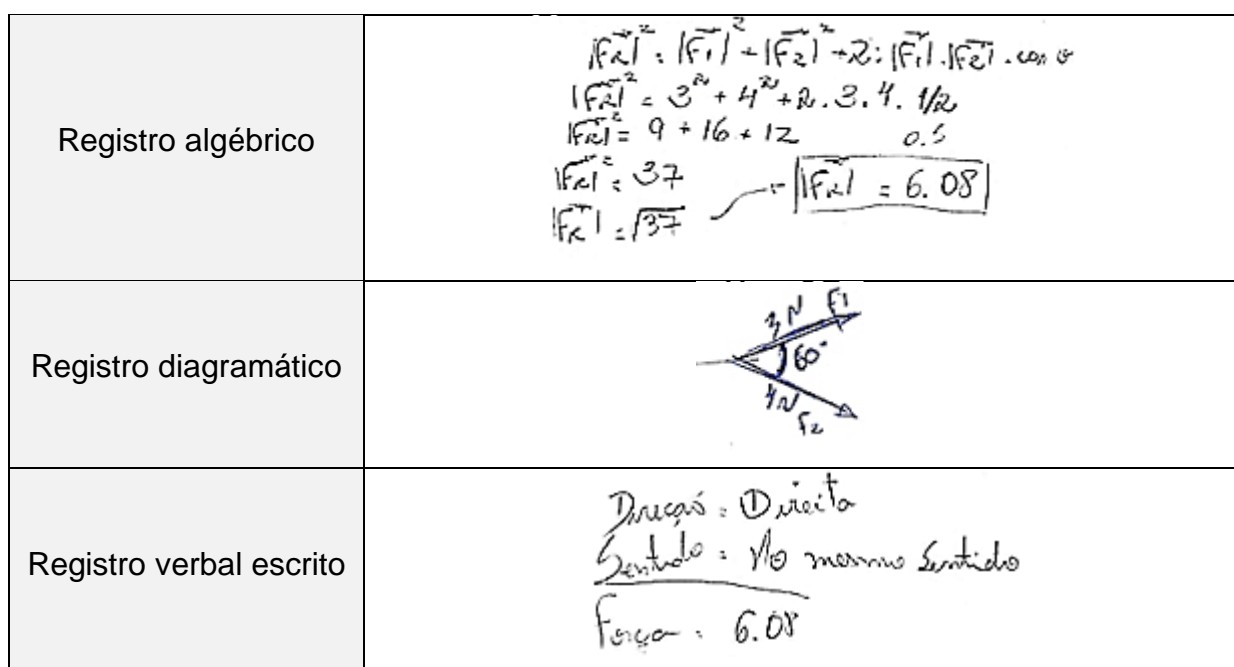 Registro algébrico
|F⃗R|² = |F⃗1|² + |F⃗2|² + 2 . |F⃗1| . |F⃗2| . cos θ
|F⃗R|² = 3² + 4² + 2 . 3 . 4 . 1/2
|F⃗R|² = 9 + 16 + 12 0.5
|F⃗R|² = 37
|F⃗R| = √37 |F⃗R| = 6.08
Registro diagramático
3 N F1
60°
4N
F2
Registro verbal escrito
Direçaõ = Direita
Sentido = No mesmo Sentido
Força = 6.08